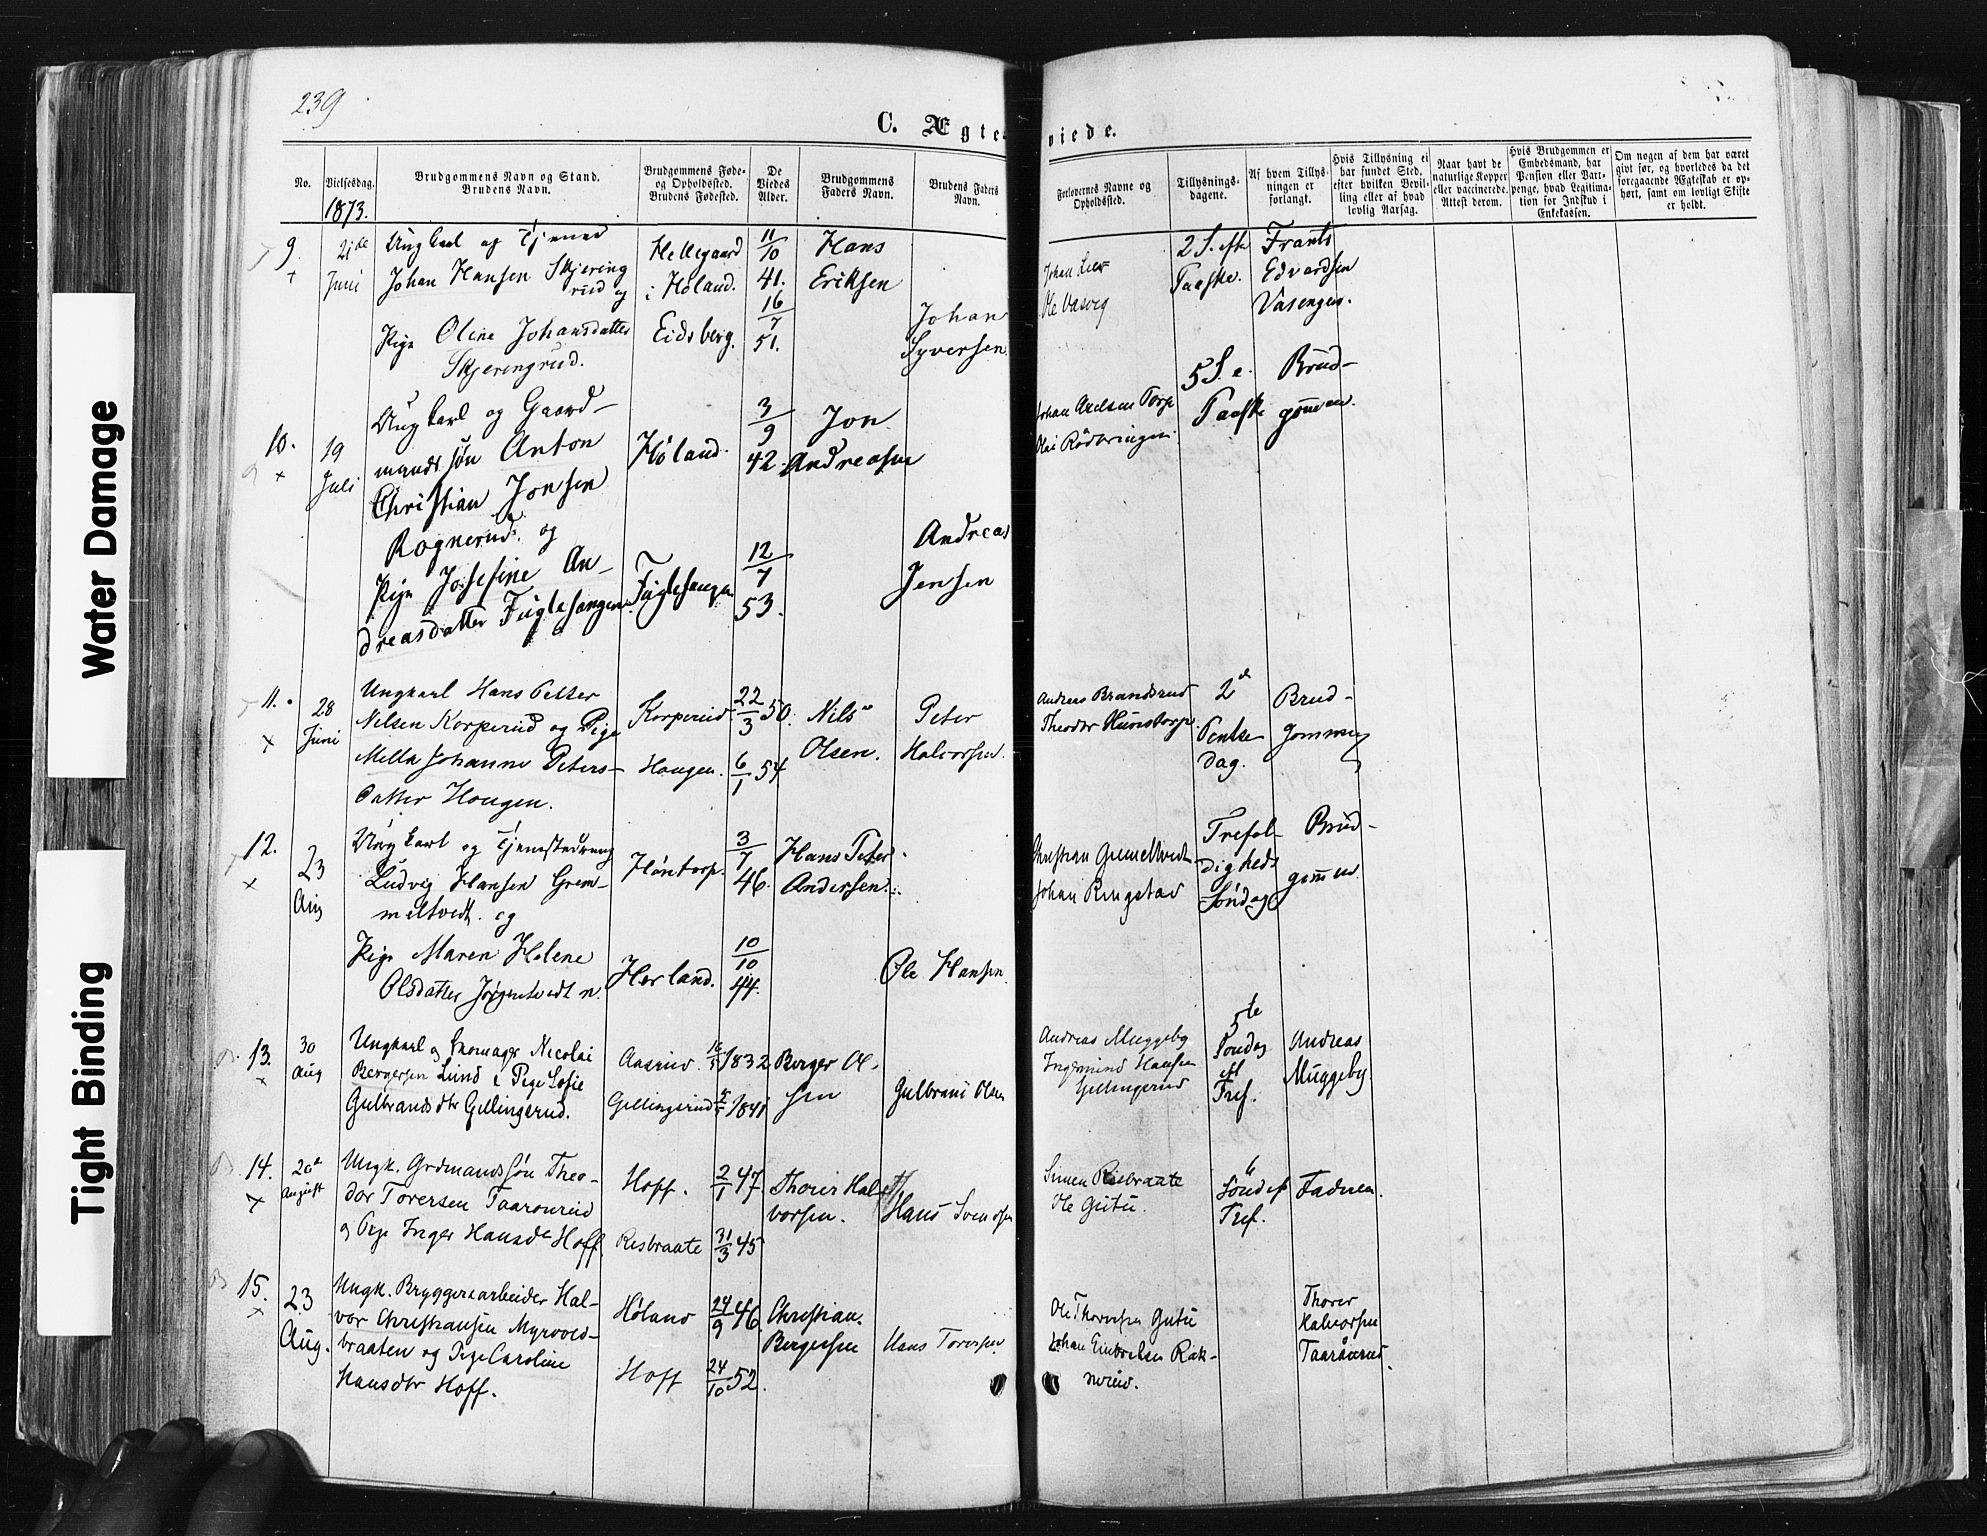 239
C. Ægteviede.
No.
Vielsesdag.
1873.
Brudgommens Navn og Stand.
Brudens Navn.
Brudgommens Føde-
og Opholdsted.
Brudens Fødested.
De
Viedes
Alder.
Brudgommens
Faders Navn.
Brudens Faders
Navn.
Forlovernes Navne og
Opholdsted.
Tillysnings-
dagene.
Af hvem Tillys-
ningen er
forlangt.
Hvis Tillysning ei
har fundet Sted,
efter hvilken Bevil-
ling eller af hvad
lovlig Aarsag.
Naar havt de
naturlige Kopper
eller vaccinerede.
Attest derom.
Hvis Brudgommen er
Embedsmand, har
Pension eller Vart-
penge, hvad Legitima-
tion for Indskud i
Enkekassen.
Om nogen af dem har været
givt før, og hvorledes da det
foregaaende Ægteskab er op-
hørt, samt om lovligt Skifte
er holdt.
9. 21de Juni
Ungkarl og Tjener
Johan Hansen Skjering
rud og
Pige Oline Johansdatter
Skjerengrud.
Hellegaard
i Høland.
Eidsberg.
11/10 41.
16/7 51.
Hans
Eriksen
Johan
Syversen
Johan Lier
Ole Vasveg
2 S. efter
Paaske.
Frants
Edvardsen
Vasengen.
10. 19 Juli
Ungkarl og Gaard-
mands søn Anton
Christian Jonsen
Rognerud. og
Pige Josefine An-
dreasdatter Fuglesangen
Høland.
Fuglesangen
3/9 42.
12/7 53.
Jon
Andreasen
Andreas
Jensen
Johan Axelsen Torp
Olai Rødtvingen.
5 S. e.
Paaske
Brud-
gommen.
11. 28 Juni
Ungkarl Hans Petter
Nilsen Korperud og Pige
Mella Johanne Peters-
datter Hougen.
Korperud
Hougen.
22/3 50.
6/1 54
Nils
Olsen.
Peter
Halvorsen.
Andreas Brandsrud
Theodor Hunstorp.
2d
Pentse
dag.
Brud-
gommen
12. 23 Aug
Ungkarl og Tjenestedreng
Ludvig Hansen Grem-
meltvedt. og
Pige Maren Helene
Olsdatter Jørgentvedt n.
Høntorp.
Herland.
3/7 46.
10/10 44.
Hans Peter
Andersen.
Ole Hansen
Christian Gremeltvedt
Johan Ringstad
Trefol-
digheds
Søndag
Brud-
gommen.
13. 30 Aug
Ungkarl og Skomager Nicolai
Bergersen Lund & Pige Sofie
Gulbrandsdtr Gellingerud.
Aasrud
Gellingerud
1832
1841
Berger Ol-
sen
Gulbrand Olsen
Andreas Muggeby
Ingemund Hansen
Gellingerud
5te
Søndag
ef
Tref.
Andreas
Muggeby.
14. 20de August
Ungk. Grdmands søn Theo-
dor Torersen Taaronrud
og Pige Inger Hansdtr Hoff
Hoff.
Risbraate
2/1 47
31/3 45
Thorer Hal-
vorsen.
Hans Svendsen
Simen Risbraate
Ole Gutu.
4
Sønd ef
Tref.
Faderen.
15. 23 Aug.
Ungk. Bryggeriarbeider Hal-
vor Christiansen Myrvold-
braaten og Pige Caroline
Hansdtr Hoff.
Høland
Hoff
24/9 46
24/10 52.
Christian
Bergersen
Hans Torersen
Ole Thorersen Gutu
Johan Einbretsen Rak-
nerud.
Thorer
Halvorsen
Taarånrud.
Water Damage
Tight Binding